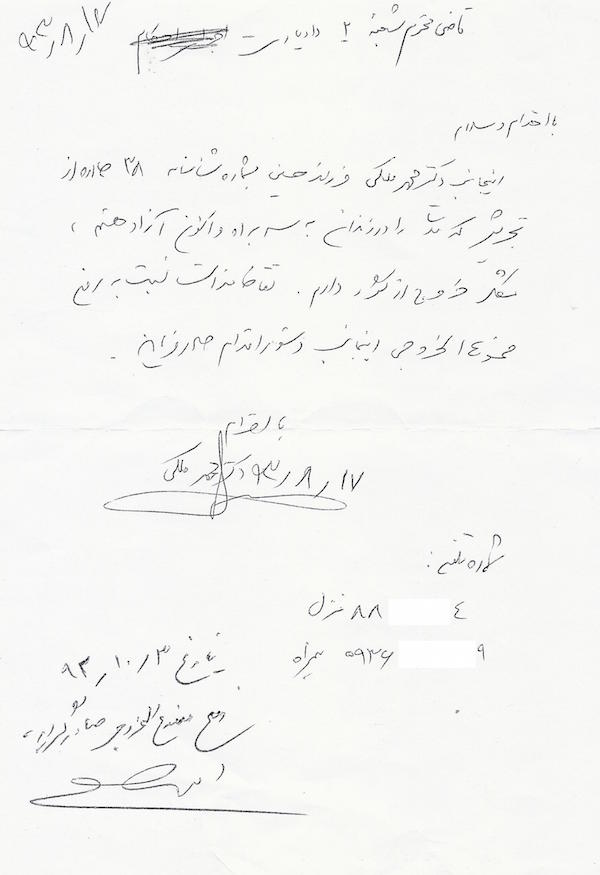 ۹۳/۸/۱۷
قاضی محترم شعبه ۲ دادیاری
با احترام و سلام
اینجانب دکتر محمد ملکی فرزند حسین بشماره شناسنامه ۳۸ صادره از
تجریش که مدت را در زندان به سر برده و اکنون آزاد هستم،
مشکل خروج از کشور دارم. تقاضامند است نسبت به رفع
ممنوع الخروجی اینجانب دستور اقدام صادر فرمایید.
با احترام
دکتر محمد ملکی ۹۳/۸/۱۷
شماره تلفن:
۸۸ ٤ منزل
۰۹۳۶ ۹ همراه
تاریخ ۹۳/۱۰/۳
رفع ممنوع الخروجی صادر گردید،